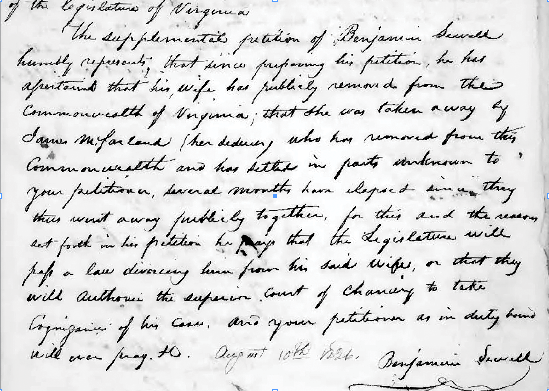 of the legislature of Virginia
The supplemental petition of Benjamin Sewell
humbly represents, that since preparing his petition, he has
assertained that his wife has publicly removed from the
Commonwealth of Virginia; that she was taken away by
James McFarland (her seducer) who has removed from this
Commonwealth and has settled in parts unknown to
your petitioner, several months have elapsed since they
thus went away publicly together, for this and the reasons
set forth in his petition he prays that the Legislature will
pass a law divorcing him from his said wife, or that they
will authorise the superior Court of Chancery to take
Cognizance of his case, and your petitioner as in duty bound
will ever pray. &c. August 10th 1826.
Benjamin Sewell